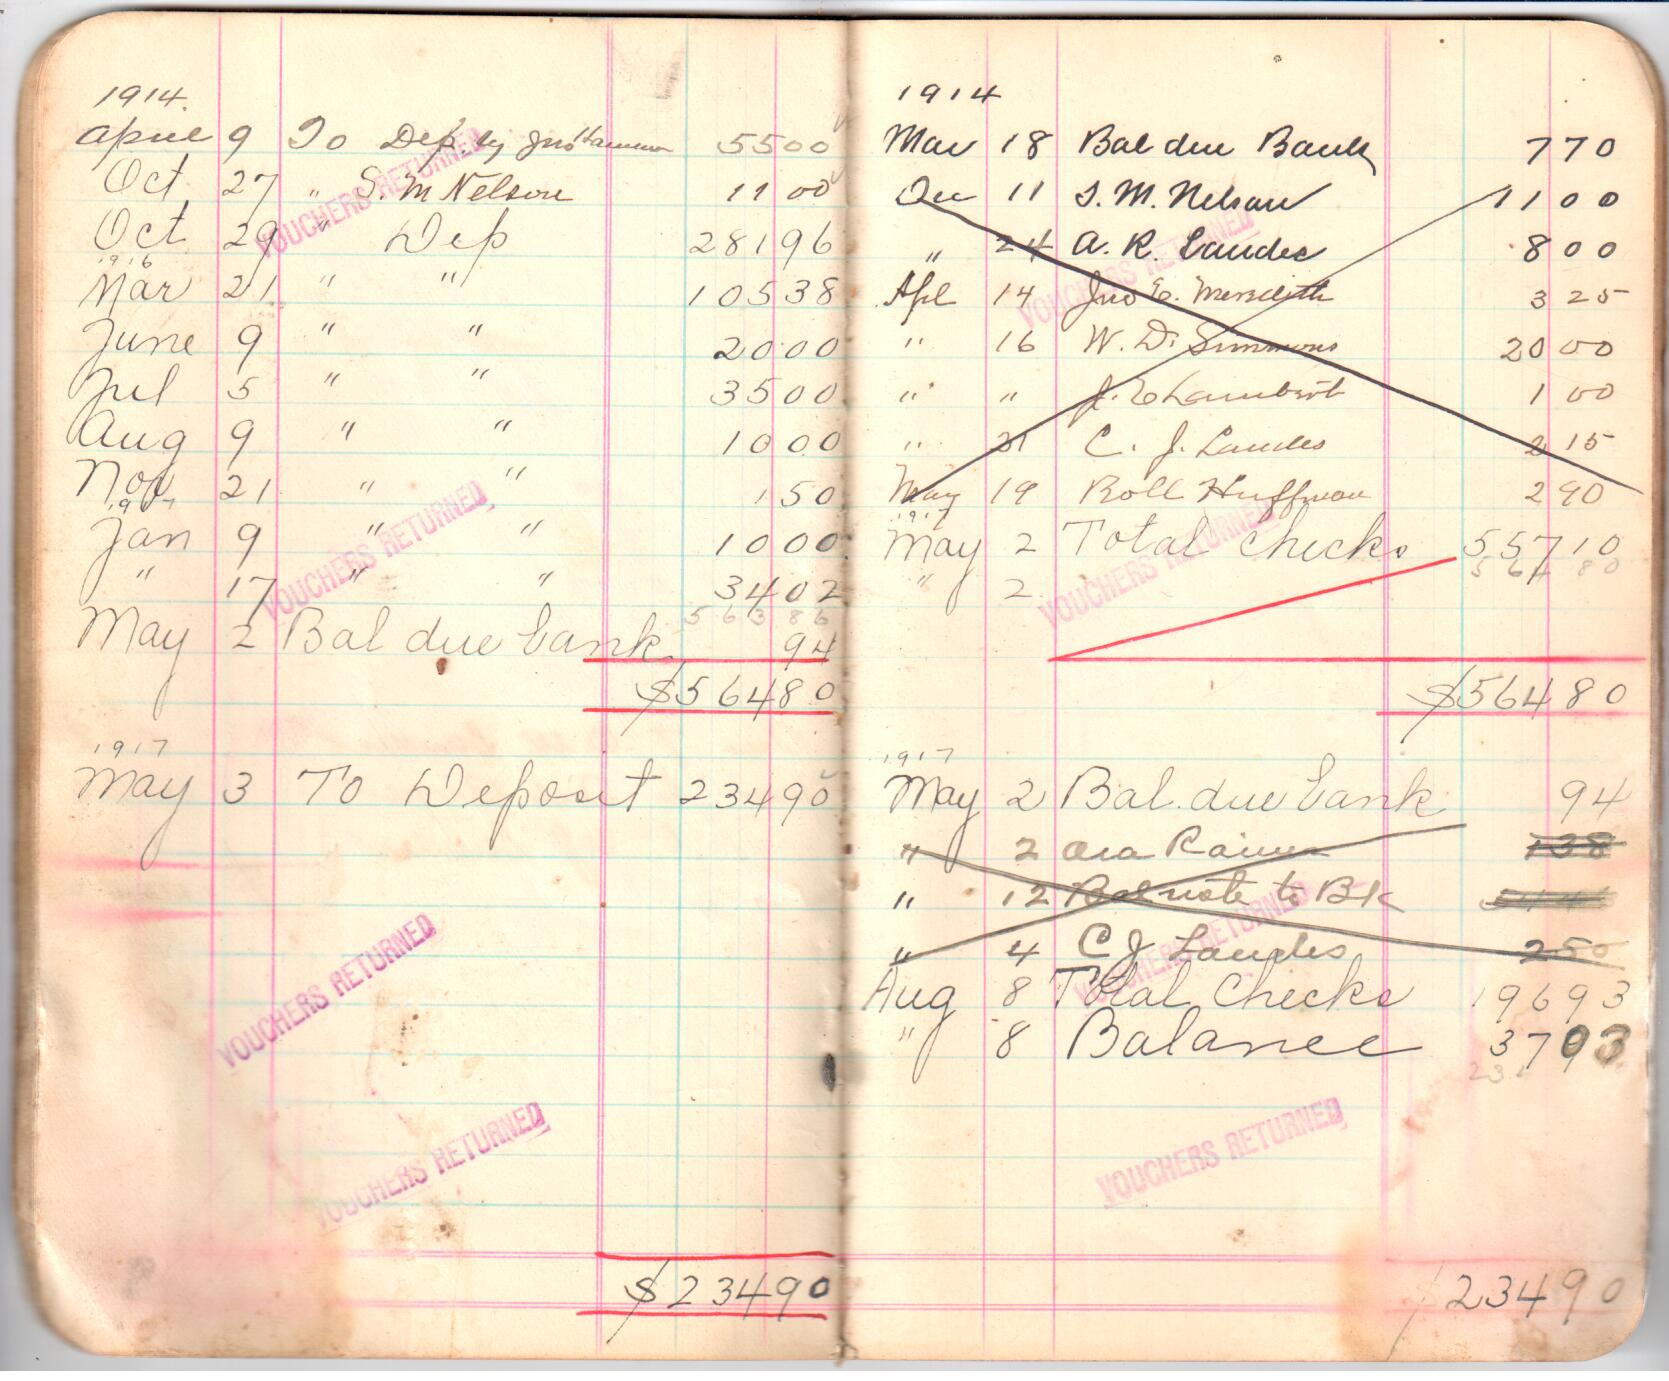 1914.
April 9 To Dep. by Jno 5500
Oct 27 " S. M Nelson 1100
Oct 29 " Dep 28196
1916
Mar 21 " " 10538
June 9 " " 2000
Jul 5 " " 3500
Aug 9 " " 1000
Nov 21 " " 150
1917
Jan 9 " " 1000
" 17 " " 3402
56386
May 2 Bal due bank 94
$56480
1917
May 3 To Deposit 23490
$23490
VOUCHERS RETURNED
VOUCHERS RETURNED
VOUCHERS RETURNED
VOUCHERS RETURNED
1914
Mar 18 Bal due Bank 770
Dec 11 S. M. Nelson 1100
" 24 A. R. Landes 800
Apl 14 Jno E. Meredith 325
" 16 W. D. Simmons 2000
" " J. E Lambert 100
" 21 C. J. Landes 215
May 19 Roll Huffman 290
1917
May 2 Total Checks 55710
56480
" 2
$56480
1917
May 2 Bal. due bank 94
" 2 Ora 138
" 12 Bal note to Bk
" 4 C J Landes 250
Aug 8 Total Checks 19693
" 8 Balance 3703
$23490
VOUCHERS RETURNED
VOUCHERS RETURNED
VOUCHERS RETURNED
VOUCHERS RETURNED